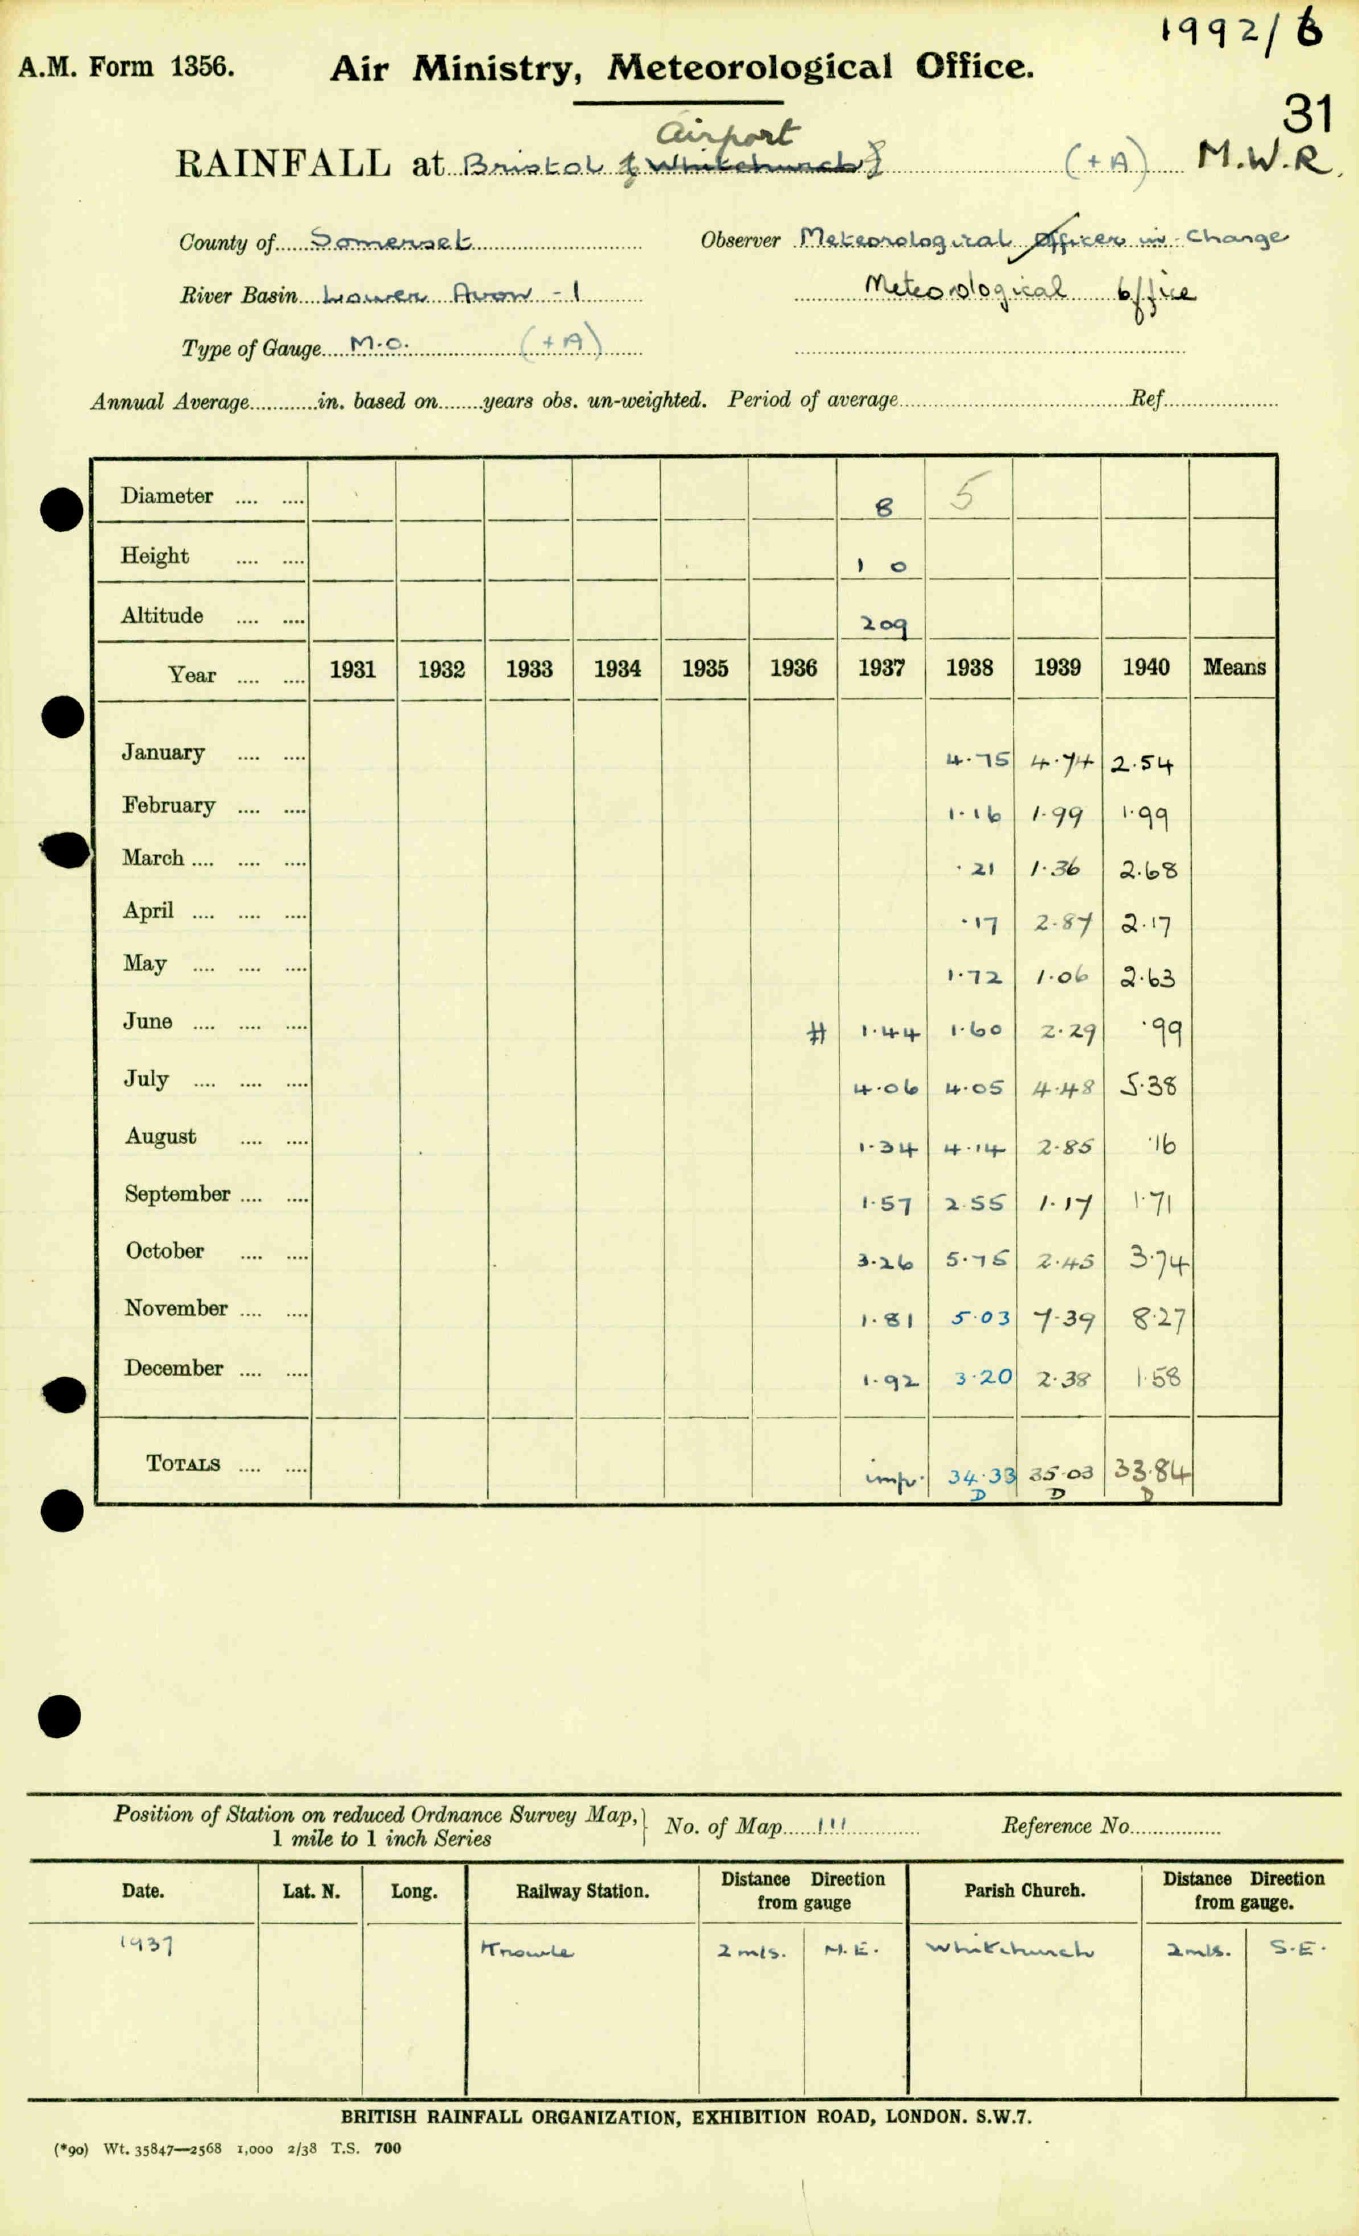 1992/6
A.M. Form 1356. Air Ministry, Meteorological Office.
31
Airport
RAINFALL at Bristol (Whitchurch) (+A) M.W.R.
County of Somerset Observer Meteorological Officer in Charge
River Basin Lower Avon -1 Meteorological Office
Type of Gauge M.O. (+A)
Annual Average in. based on years obs. un-weighted. Period of average Ref
Diameter .... .... 8 5
Height .... .... 1 0
Altitude .... .... 209
Year .... .... 1931 1932 1933 1934 1935 1936 1937 1938 1939 1940 Means
January .... .... 4.75 4.74 2.54
February .... .... 1.16 1.99 1.99
March .... .... .... .21 1.36 2.68
April .... .... .... .17 2.87 2.17
May .... .... .... 1.72 1.06 2.63
June .... .... .... # 1.44 1.60 2.29 .99
July .... .... .... 4.06 4.05 4.48 5.38
August .... .... 1.34 4.14 2.85 .16
September .... .... 1.57 2.55 1.17 1.71
October .... .... 3.26 5.75 2.45 3.74
November .... .... 1.81 5.03 7.39 8.27
December .... .... 1.92 3.20 2.38 1.58
TOTALS .... .... imp. 34.33 35.03 33.84
D D D
Position of Station on reduced Ordnance Survey Map, No. of Map 111 Reference No
1 mile to 1 inch Series
Date. Lat. N. Long. Railway Station. Distance Direction from gauge Parish Church. Distance Direction from gauge.
1937 Knowle 2 mls. N.E. Whitchurch 2 mls. S.E.
BRITISH RAINFALL ORGANIZATION, EXHIBITION ROAD, LONDON. S.W.7.
(*90) Wt. 35847—2568 1,000 2/38 T.S. 700